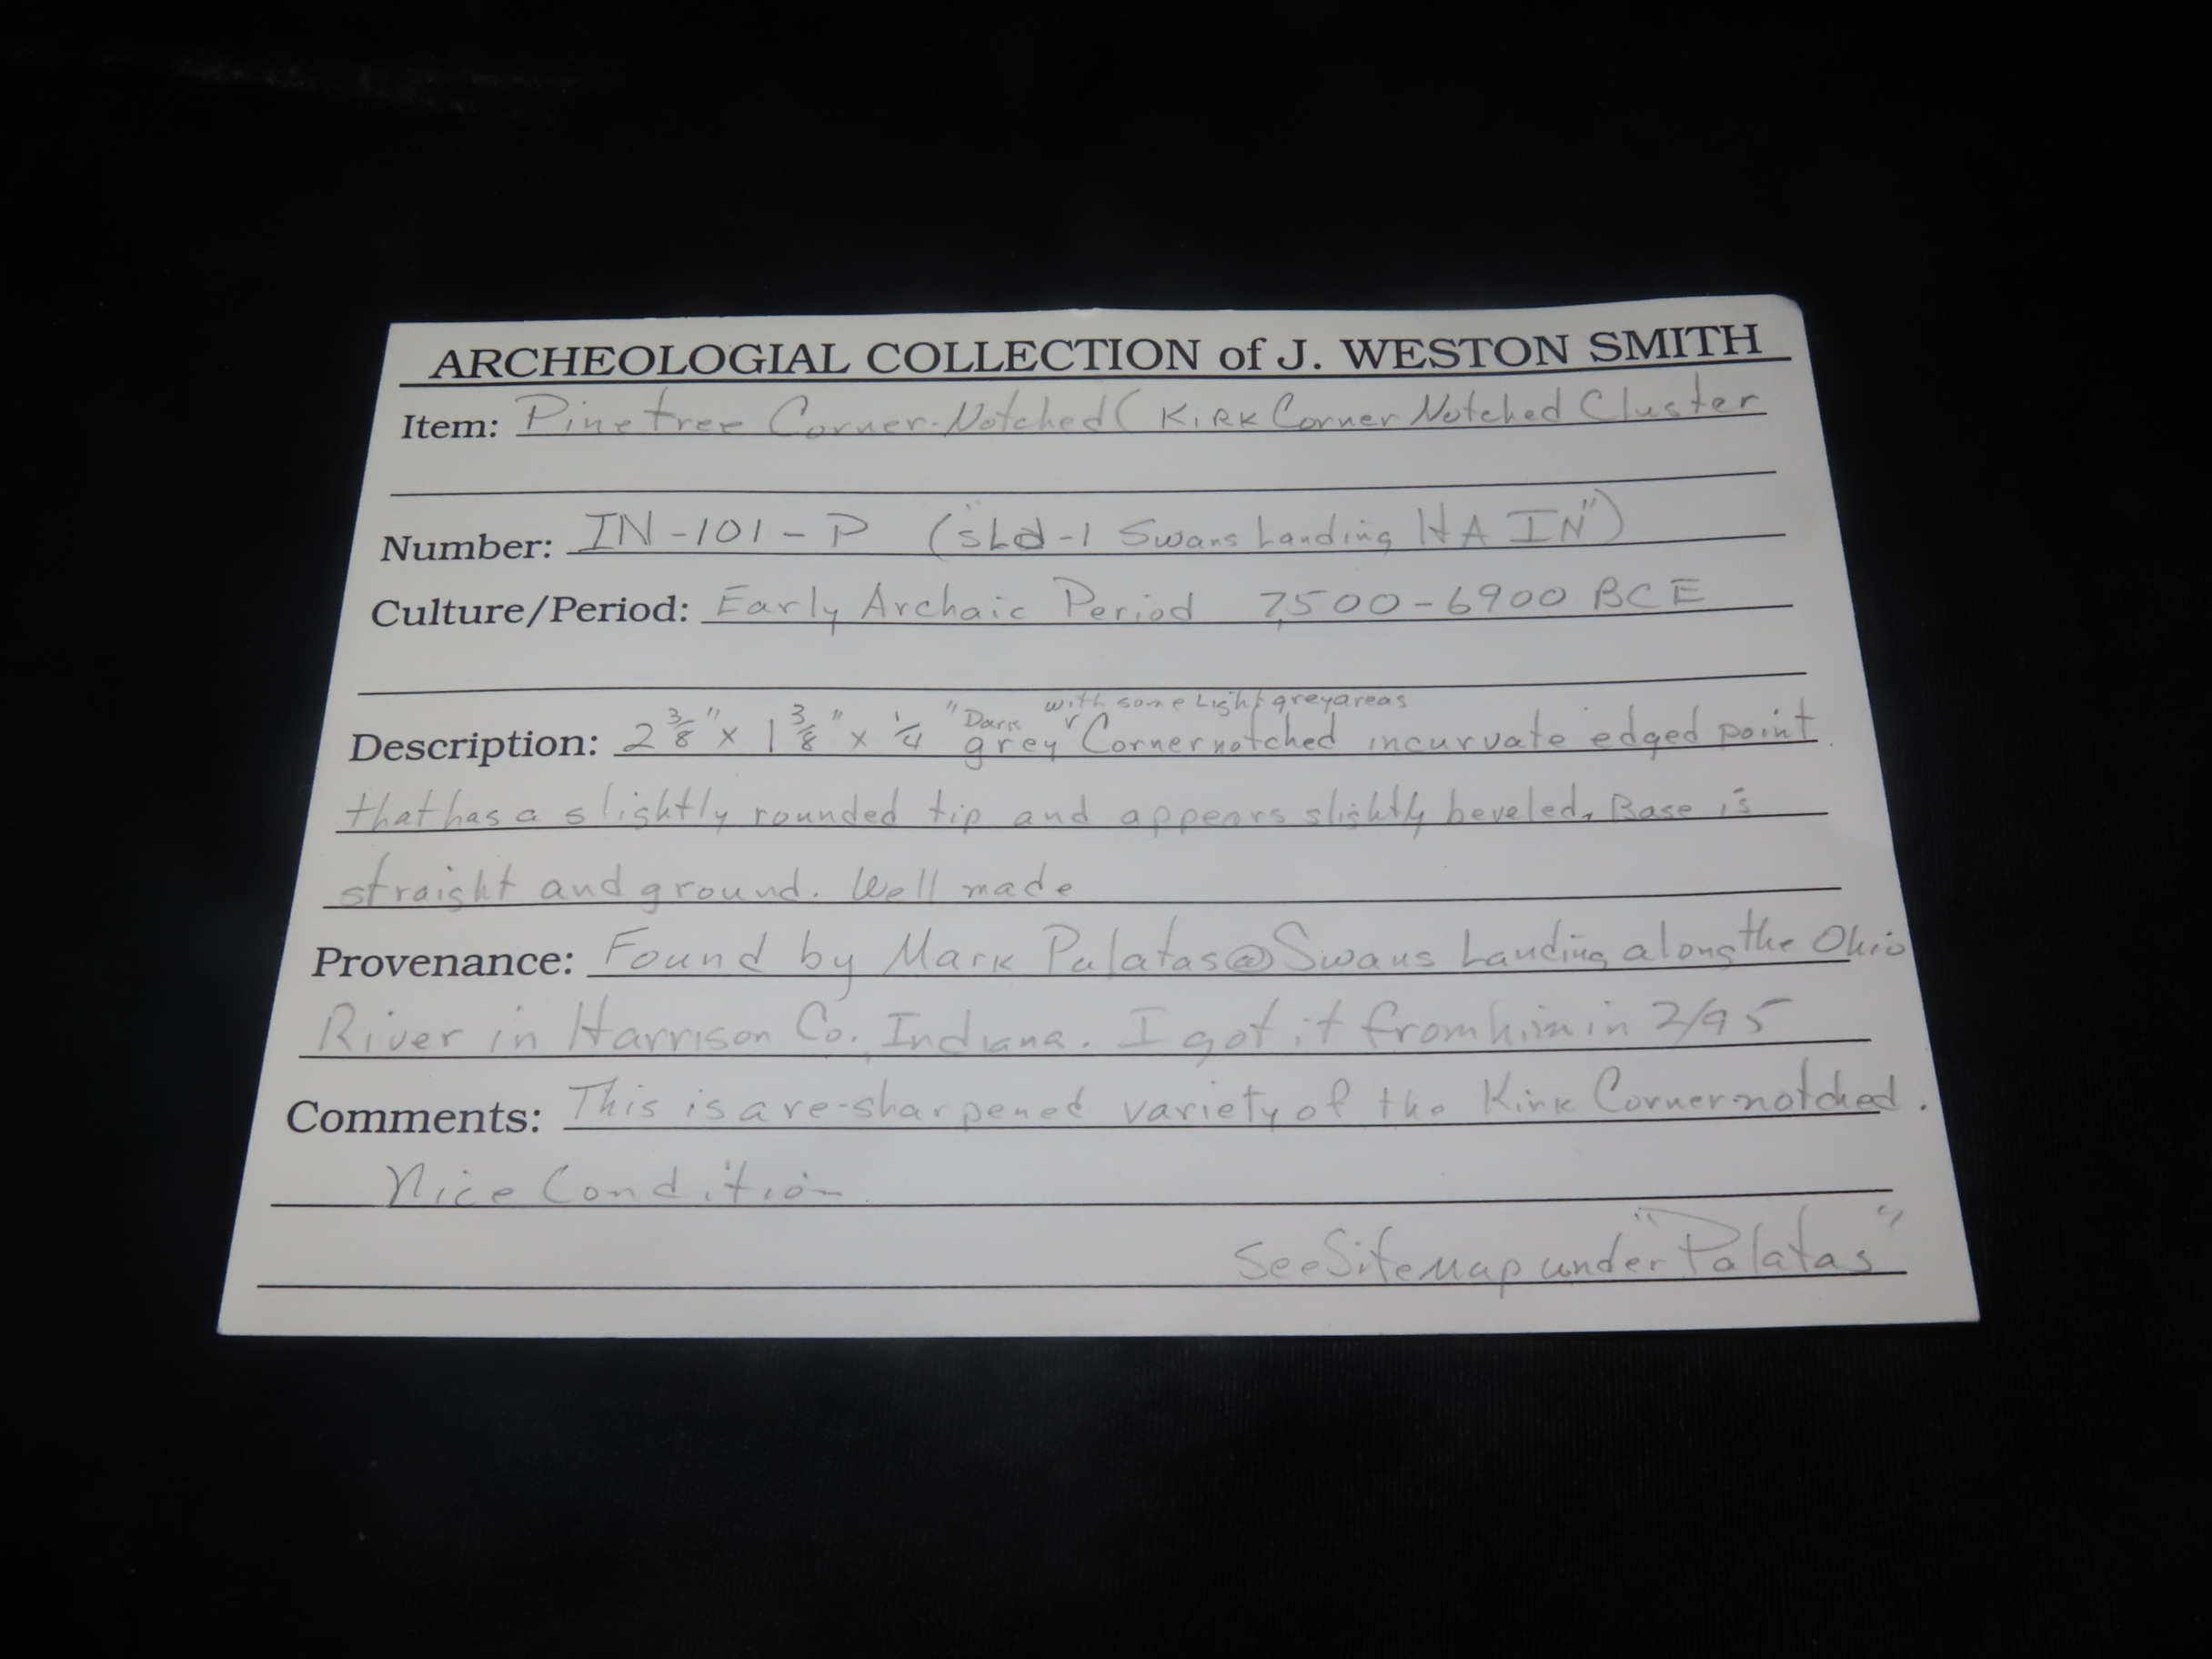 ARCHEOLOGIAL COLLECTION of J. WESTON SMITH
Item: Pine tree Corner-Notched (KIRK Corner Notched Cluster
Number: IN-101-P ("SLd-1 Swans Landing HA IN")
Culture/Period: Early Archaic Period 7,500-6900 BCE
with some Light grey areas
Description: 2 3/8" x 1 3/8" x 1/4" Dark grey Corner notched incurvate edged point
that has a slightly rounded tip and appears slightly beveled. Base is
straight and ground. Well made
Provenance: Found by Mark Palatas @ Swans Landing along the Ohio
River in Harrison Co. Indiana. I got it from him in 2/95
Comments: This is a re-sharpened variety of the Kirk Corner-notched.
Nice Condition
See Site Map under "Palatas"